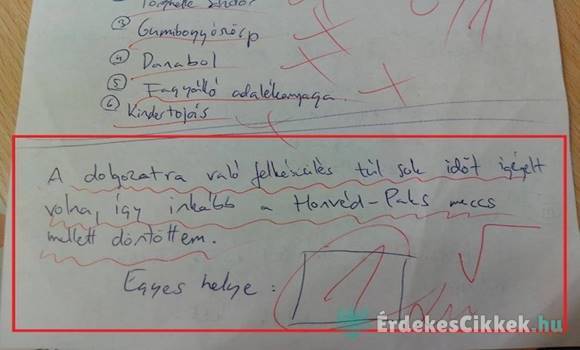 ③ Gumibogyószörp
④ Danabol
⑤ Fagyálló adalékanyaga
⑥ Kindertojás
A dolgozatra való felkészülés túl sok időt igényelt
volna, így inkább a Honvéd-Paks meccs
mellett döntöttem.
Egyes helye: 1
ÉrdekesCikkek.hu